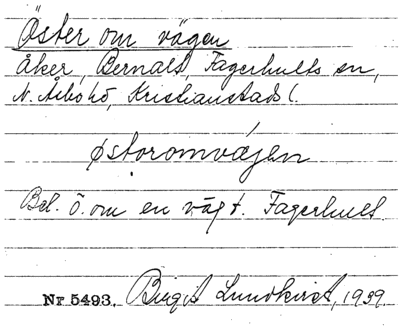 Öster om vägen
Åker, Bernalt, Fagerhults sn,
N. Åsbo hd, Kristianstads l.
østoromvägen
Bel. ö. om en väg t. Fagerhult.
Nr 5493. Birgit Lundkvist, 1939.